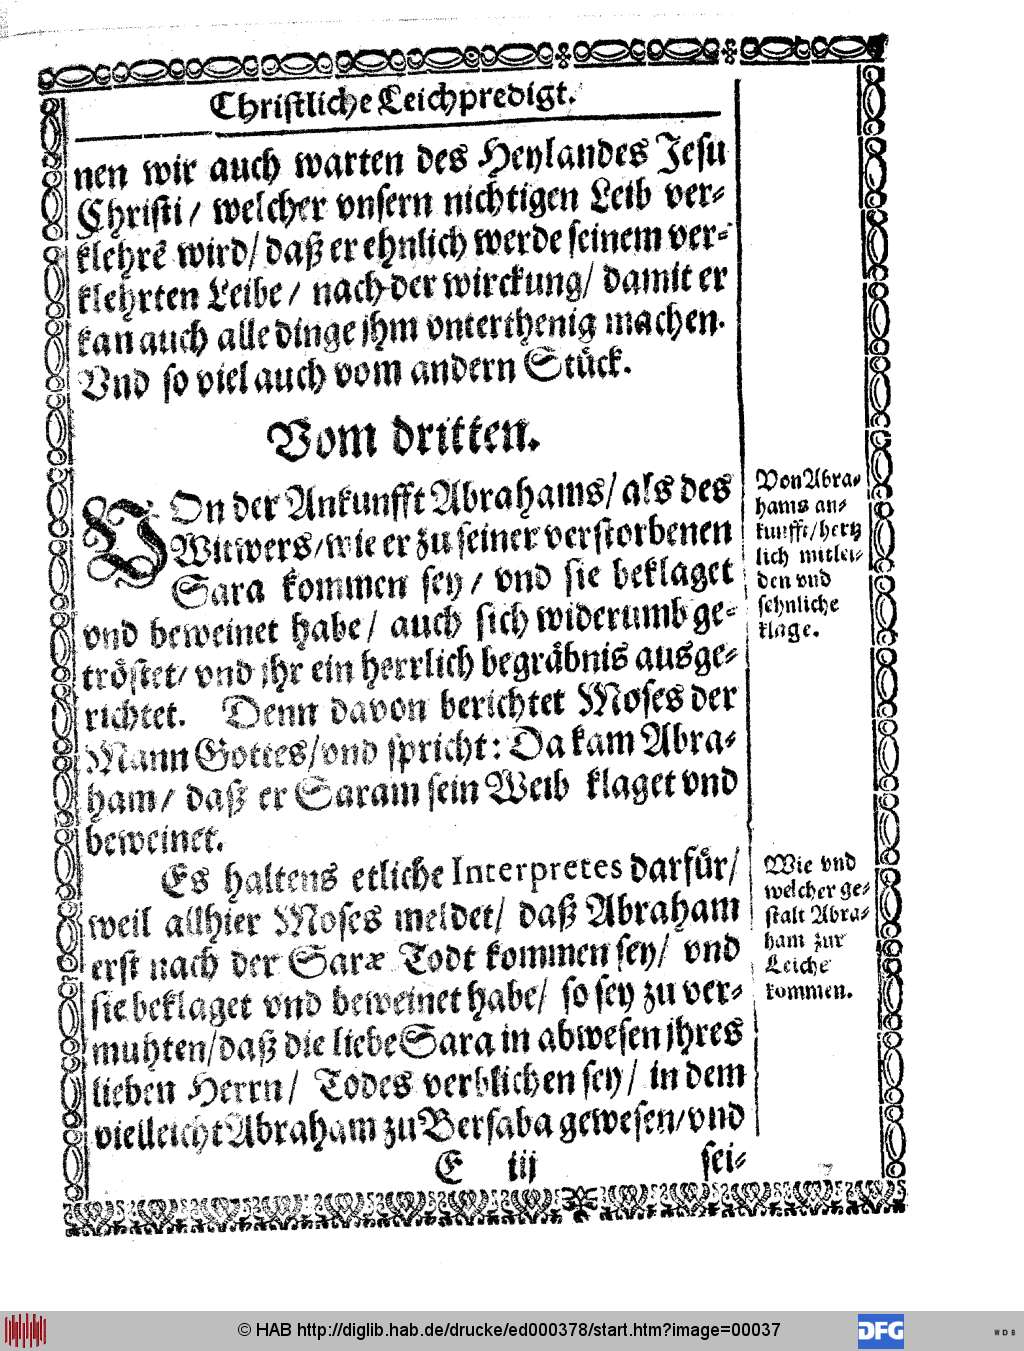 Christliche Leichpredigt.
nen wir auch warten des Heylandes Jesu
Christi/ welcher vnsern nichtigen Leib ver-
klehrē wird/ daß er ehnlich werde seinem ver-
klehrten Leibe/ nach der wirckung/ damit er
kan auch alle dinge jhm vnterthenig machen.
Vnd so viel auch vom andern Stück.
Vom dritten.
VOn der Ankunfft Abrahams/ als des
Witwers/ wie er zu seiner verstorbenen
Sara kommen sey/ vnd sie beklaget
vnd beweinet habe/ auch sich widerumb ge-
tröstet/ vnd jhr ein herrlich begräbnis ausge-
richtet. Denn davon berichtet Moses der
Mann Gottes/ vnd spricht: Da kam Abra-
ham/ daß er Saram sein Weib klaget vnd
beweinet.
Von Abra-
hams an-
kunfft/ hertz
lich mitlei-
den vnd
sehnliche
klage.
Es haltens etliche Interpretes darfür/
weil allhier Moses meldet/ daß Abraham
erst nach der Saræ Todt kommen sey/ vnd
sie beklaget vnd beweinet habe/ so sey zu ver-
muhten/ daß die liebe Sara in abwesen jhres
lieben Herrn/ Todes verblichen sey/ in dem
vielleicht Abraham zu Bersaba gewesen/ vnd
Wie vnd
welcher ge-
stalt Abra-
ham zur
Leiche
kommen.
E iij
sei-
© HAB http://diglib.hab.de/drucke/ed000378/start.htm?image=00037
DFG
WDB